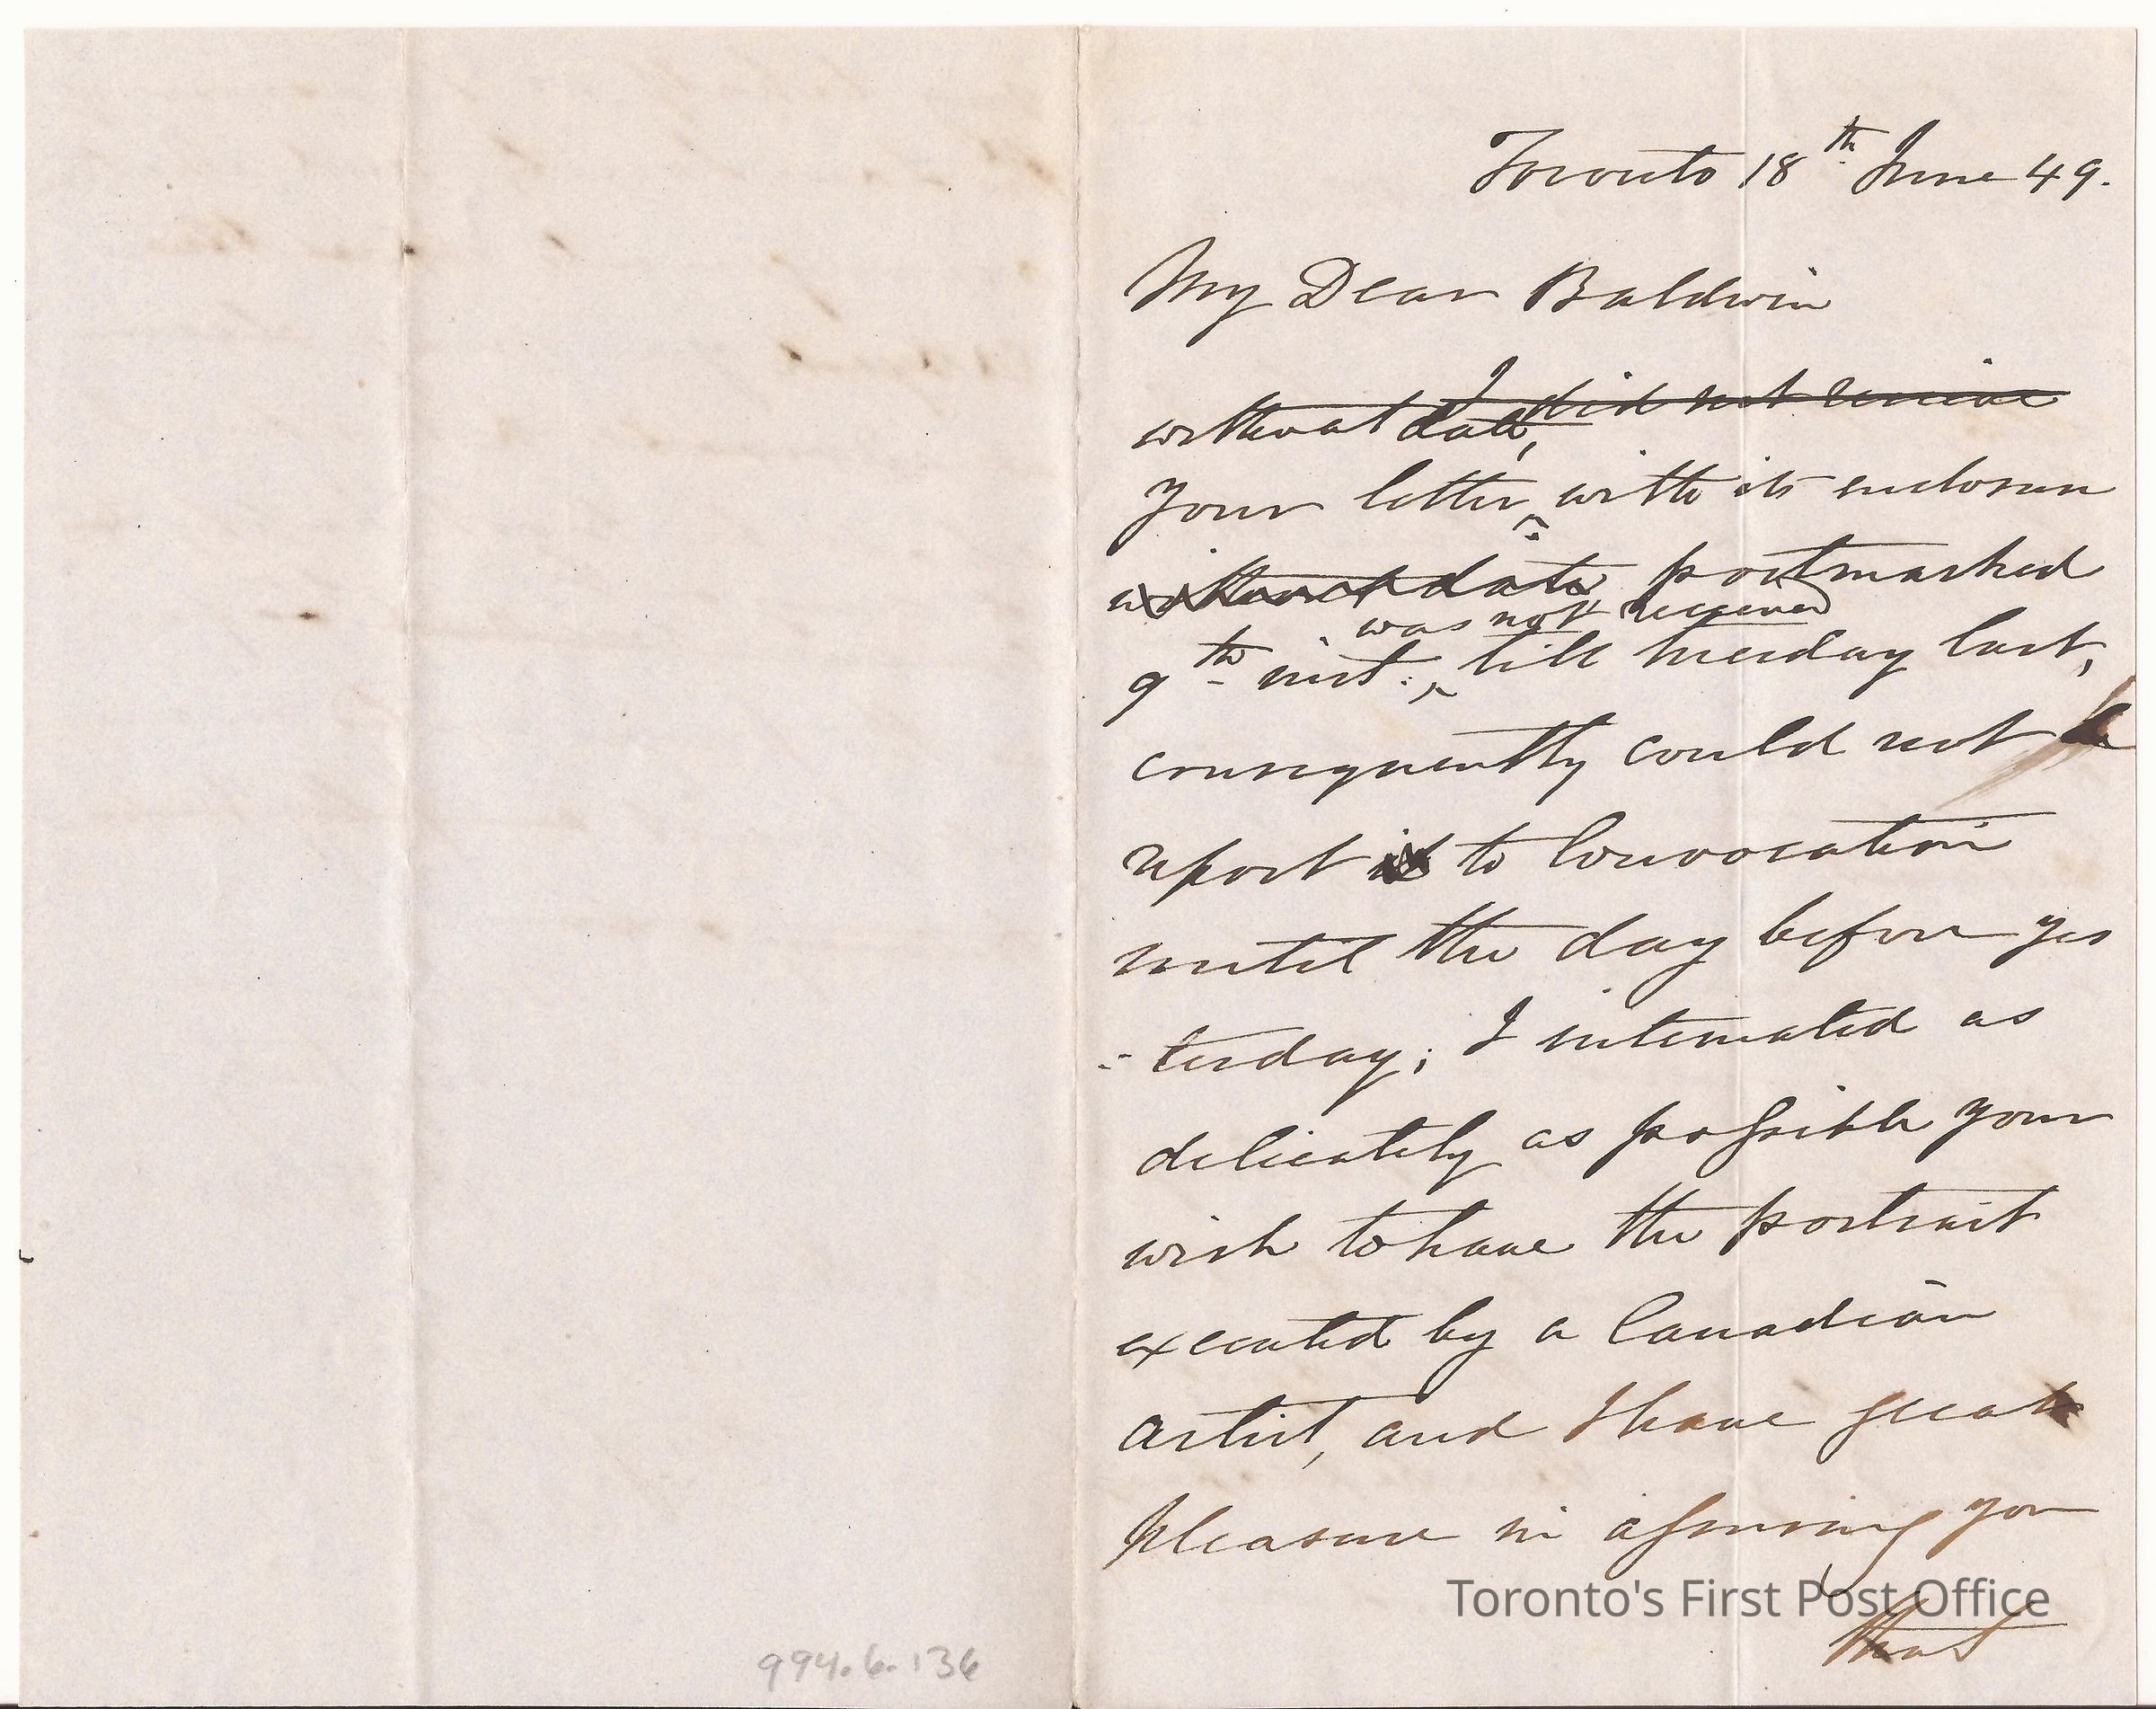 Toronto 18th June 49.
My Dear Baldwin
I did not receive
without date,
Your letter with its enclosure
without date postmarked
was not received
9th inst. till tuesday last,
consequently could not
report it to Convocation
until the day before yes
-terday; I intimated as
delicately as possible your
wish to have the portrait
executed by a Canadian
artist, and I have great
pleasure in assuring you
that
Toronto's First Post Office
994.6.136